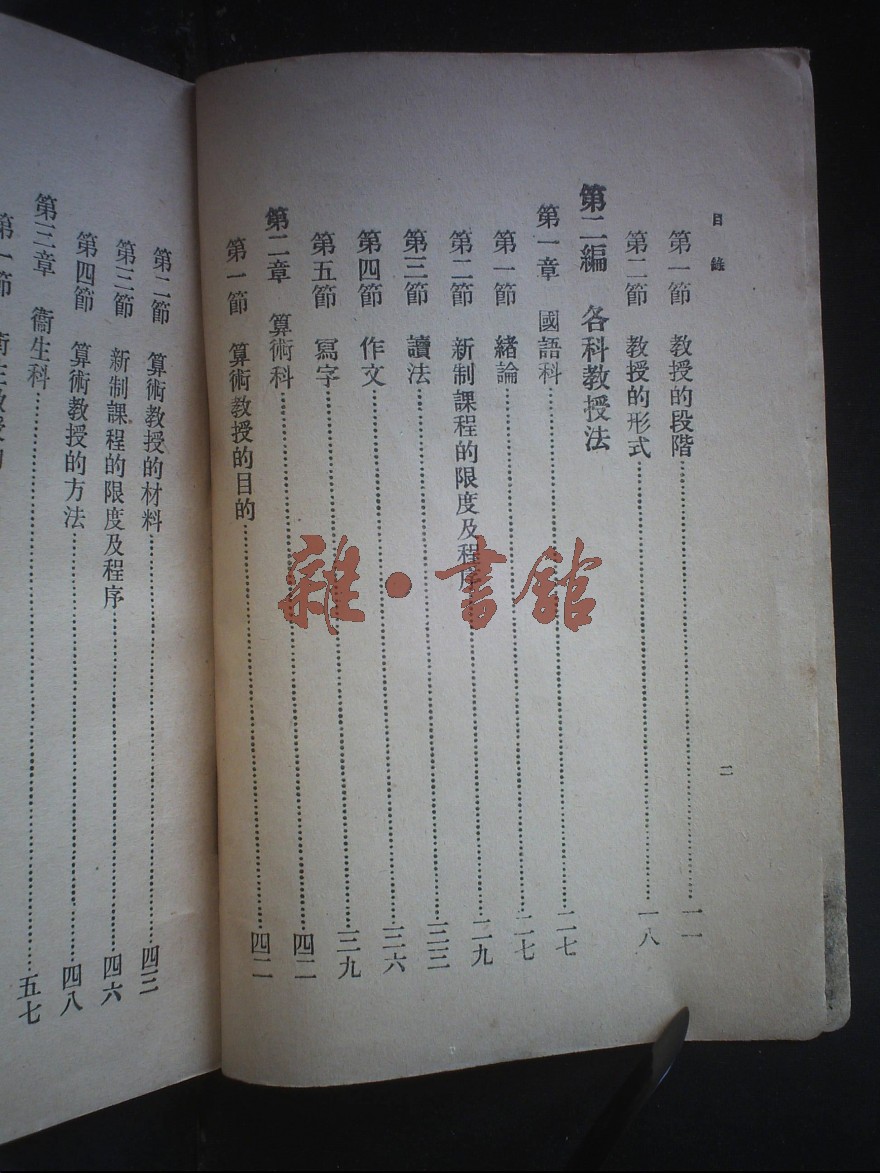 目錄
二
第一節 教授的段階⋯⋯一一
第二節 教授的形式⋯⋯一八
第二編 各科教授法
第一章 國語科⋯⋯二七
第一節 緒論⋯⋯二七
第二節 新制課程的限度及程序⋯⋯二九
第三節 讀法⋯⋯三三
第四節 作文⋯⋯三六
第五節 寫字⋯⋯三九
第二章 算術科⋯⋯四二
第一節 算術教授的目的⋯⋯四二
第二節 算術教授的材料⋯⋯四三
第三節 新制課程的限度及程序⋯⋯四六
第四節 算術教授的方法⋯⋯四八
第三章 衞生科⋯⋯五七
第一節 衞生教授的
雜·書館